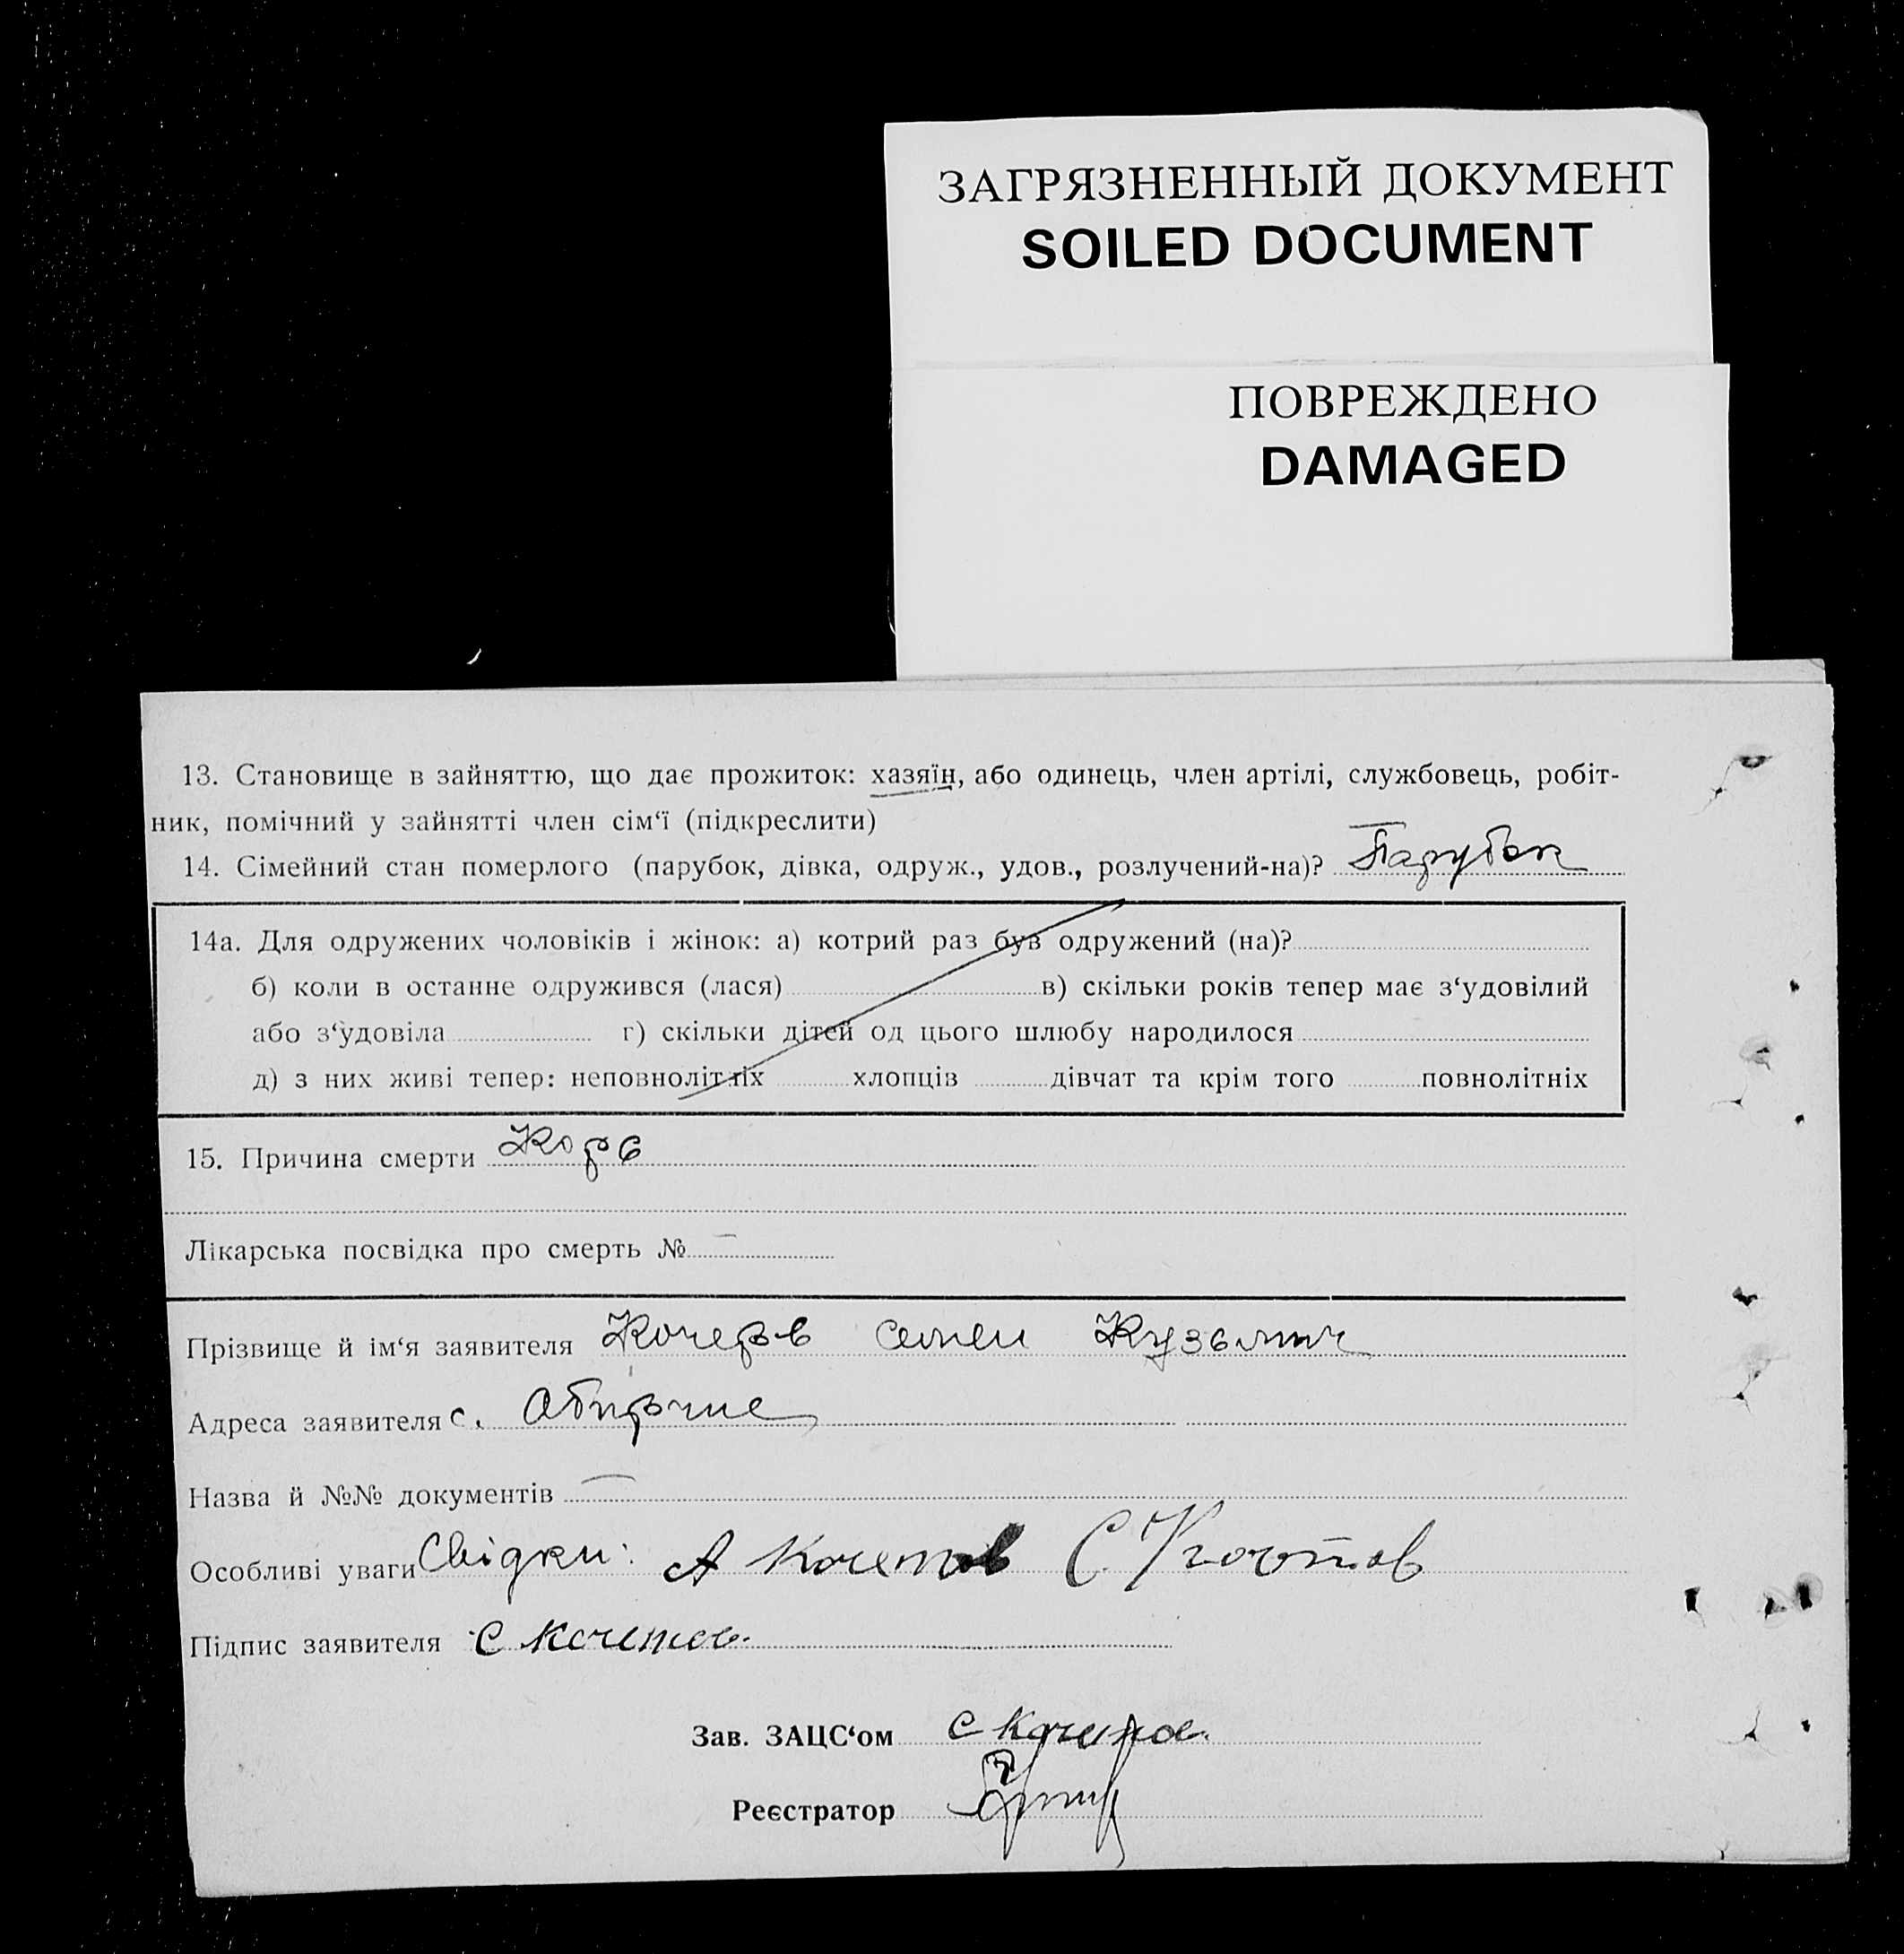 ЗАГРЯЗНЕННЫЙ ДОКУМЕНТ
SOILED DOCUMENT
ПОВРЕЖДЕНО
DAMAGED
13. Становище в зайняттю, що дає прожиток: хазяїн, або одинець, член артілі, службовець, робіт-
ник, помічний у зайнятті член сім‘ї (підкреслити)
14. Сімейний стан померлого (парубок, дівка, одруж., удов., розлучений-на)? Парубок
14а. Для одружених чоловіків і жінок: а) котрий раз був одружений (на)?
б) коли в останне одружився (лася) в) скільки років тепер має з‘удовілий
або з‘удовіла г) скільки дітей од цього шлюбу народилося
д) з них живі тепер: неповнолітніх хлопців дівчат та крім того повнолітніх
15. Причина смерти Корь
Лікарська посвідка про смерть № —
Прізвище й ім‘я заявителя Семен Кузьмич
Адреса заявителя с.
Назва й №№ документів —
Особливі уваги Свідки: А Кочетов С
Підпис заявителя С Кочетов
Зав. ЗАЦС‘ом С
Реєстратор